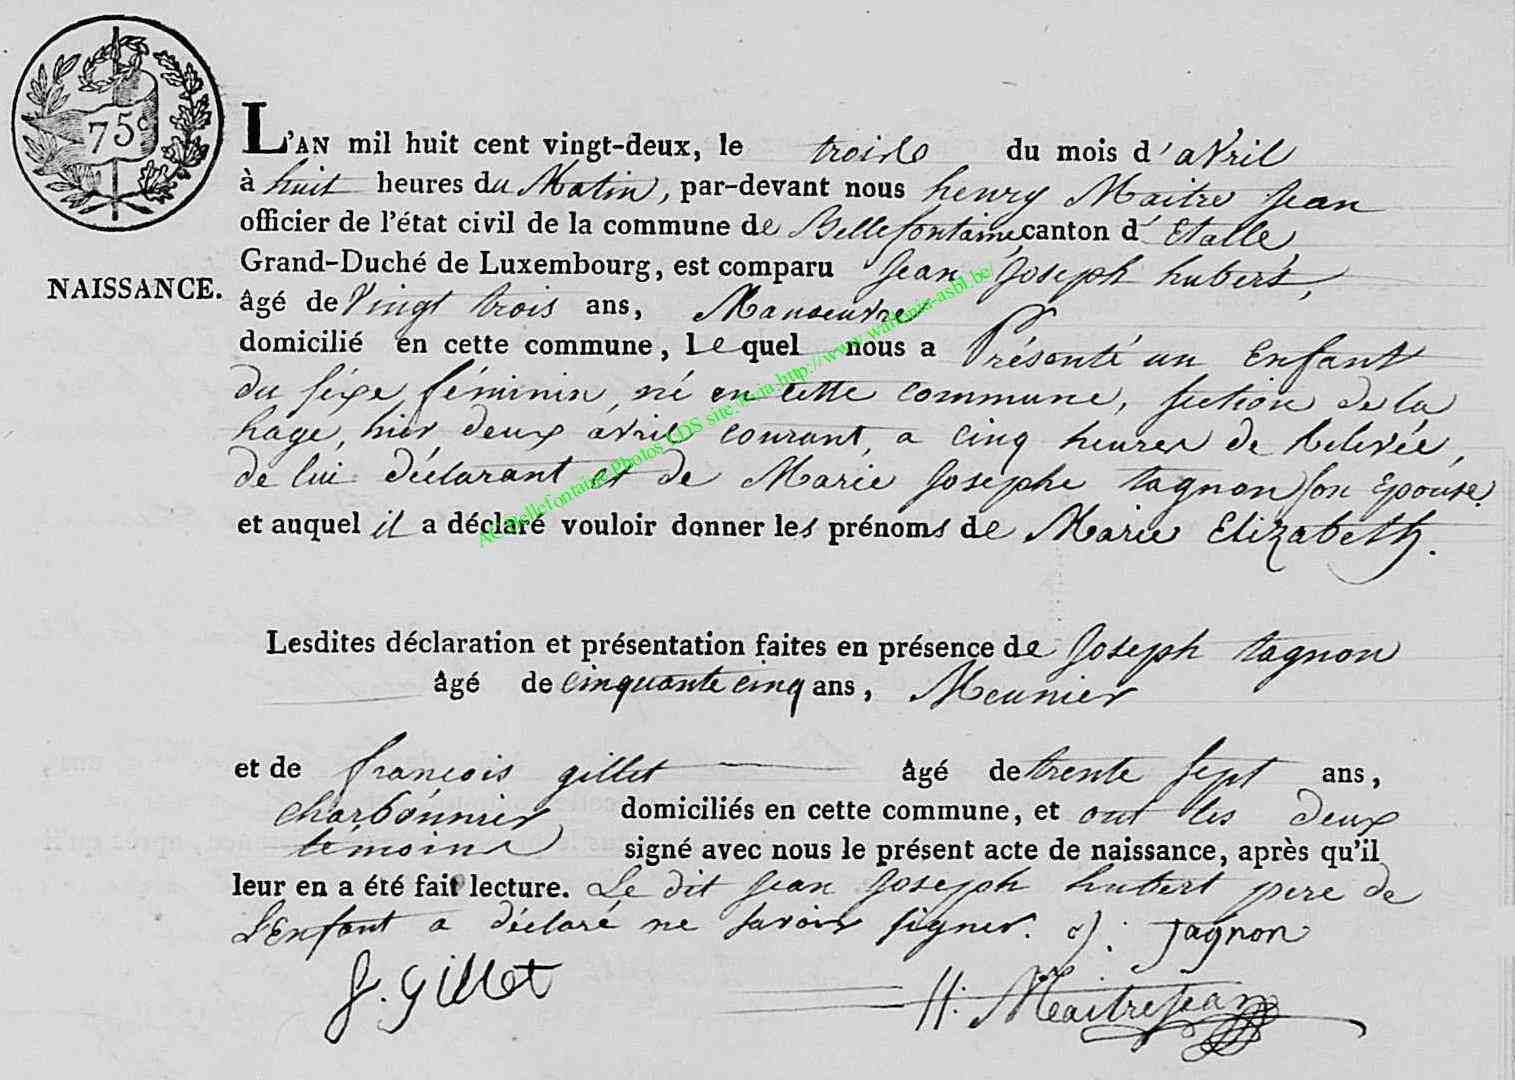 75c
L'AN mil huit cent vingt-deux, le trois du mois d'avril
à huit heures du Matin, par-devant nous henry Maitre Jean
officier de l'état civil de la commune de Bellefontaine, canton d'Etalle
Grand-Duché de Luxembourg, est comparu Jean Joseph hubert,
NAISSANCE.
âgé de Vingt trois ans, Manoeuvre
domicilié en cette commune, Lequel nous a Présenté un Enfant
du séxe féminin, né en cette commune, section de la
hage, hier deux avril courant, a cinq heures de Relevée,
de lui déclarant et de Marie Josephe tagnon son Epouse
et auquel il a déclaré vouloir donner les prénoms de Marie Elizabeth.
Lesdites déclaration et présentation faites en présence de Joseph tagnon
âgé de cinquante cinq ans, Meunier
et de françois gillet âgé de trente sept ans,
charbonnier domiciliés en cette commune, et ont les deux
témoins signé avec nous le présent acte de naissance, après qu'il
leur en a été fait lecture. Le dit Jean Joseph hubert pere de
L'Enfant a déclaré ne savoir signer. J: Tagnon
f. gillet H: Maitrejean
AC Bellefontaine Photos CDS site itinia http://www.waltinia-asbl.be/